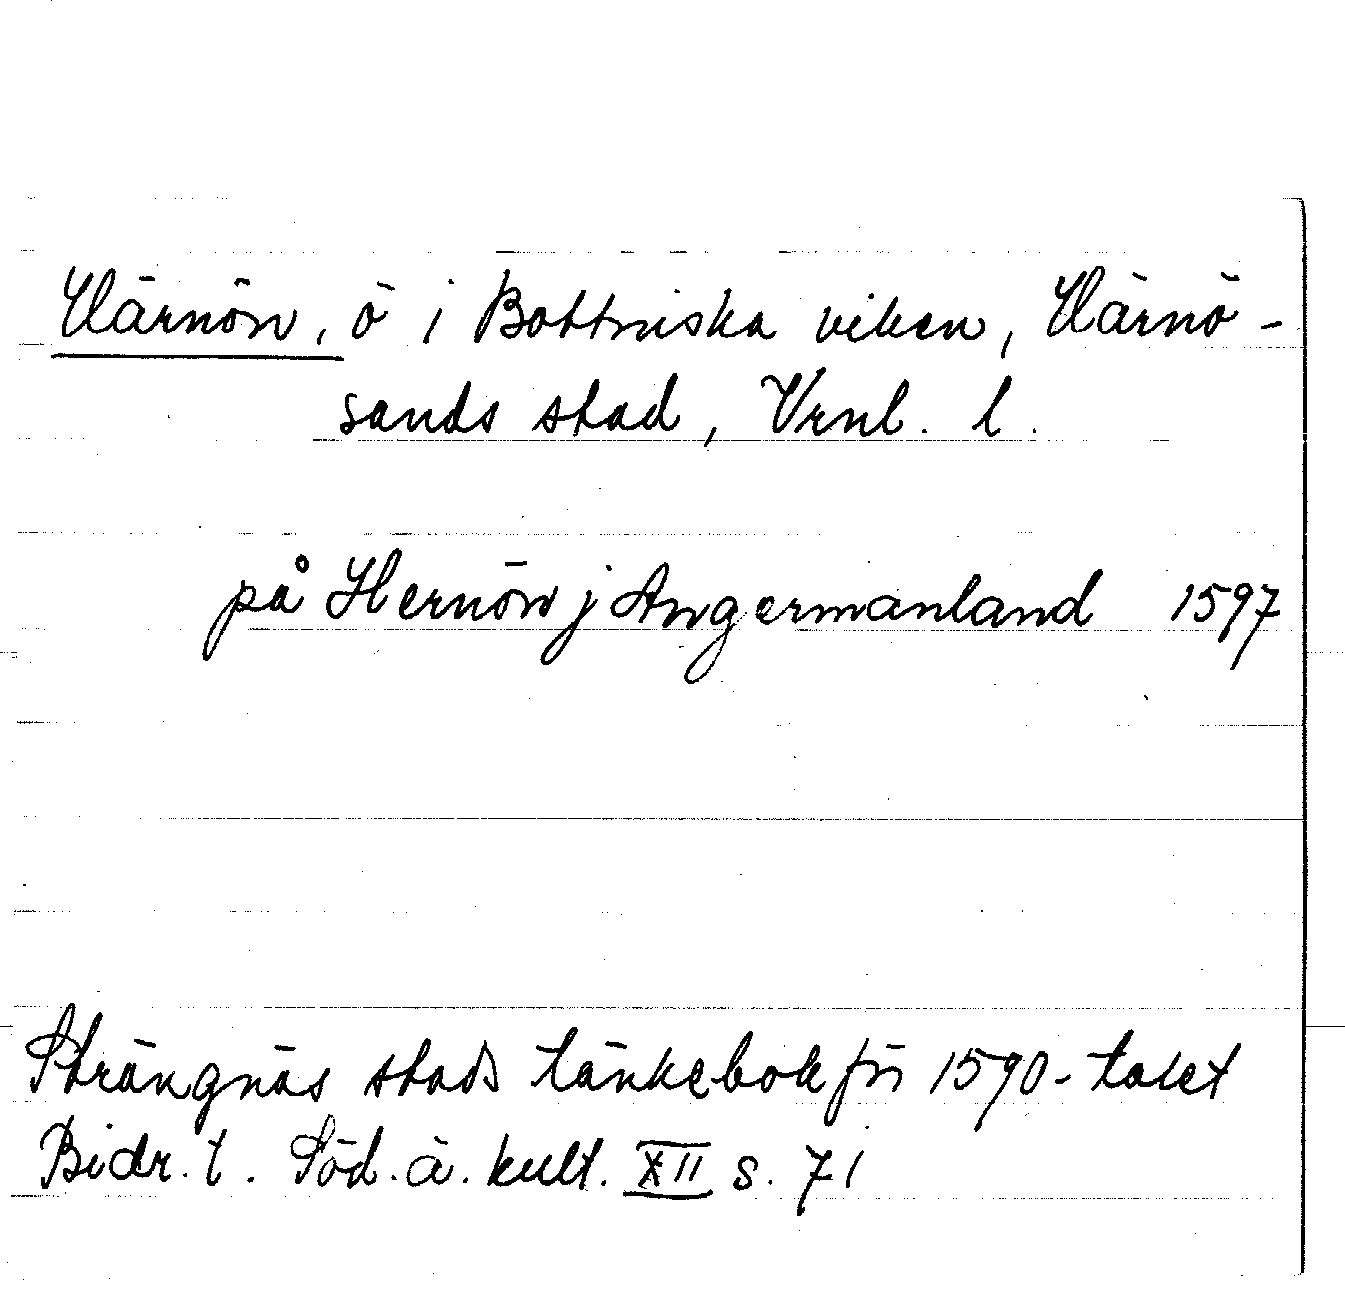 Härnön, ö i Bottniska viken, Härnö-
sands stad, Vrnl. l.
på Hernön j Angermanland 1597
Strängnäs stads tänkebok för 1590-talet
Bidr. t. Söd. ä. kult. XII s. 71